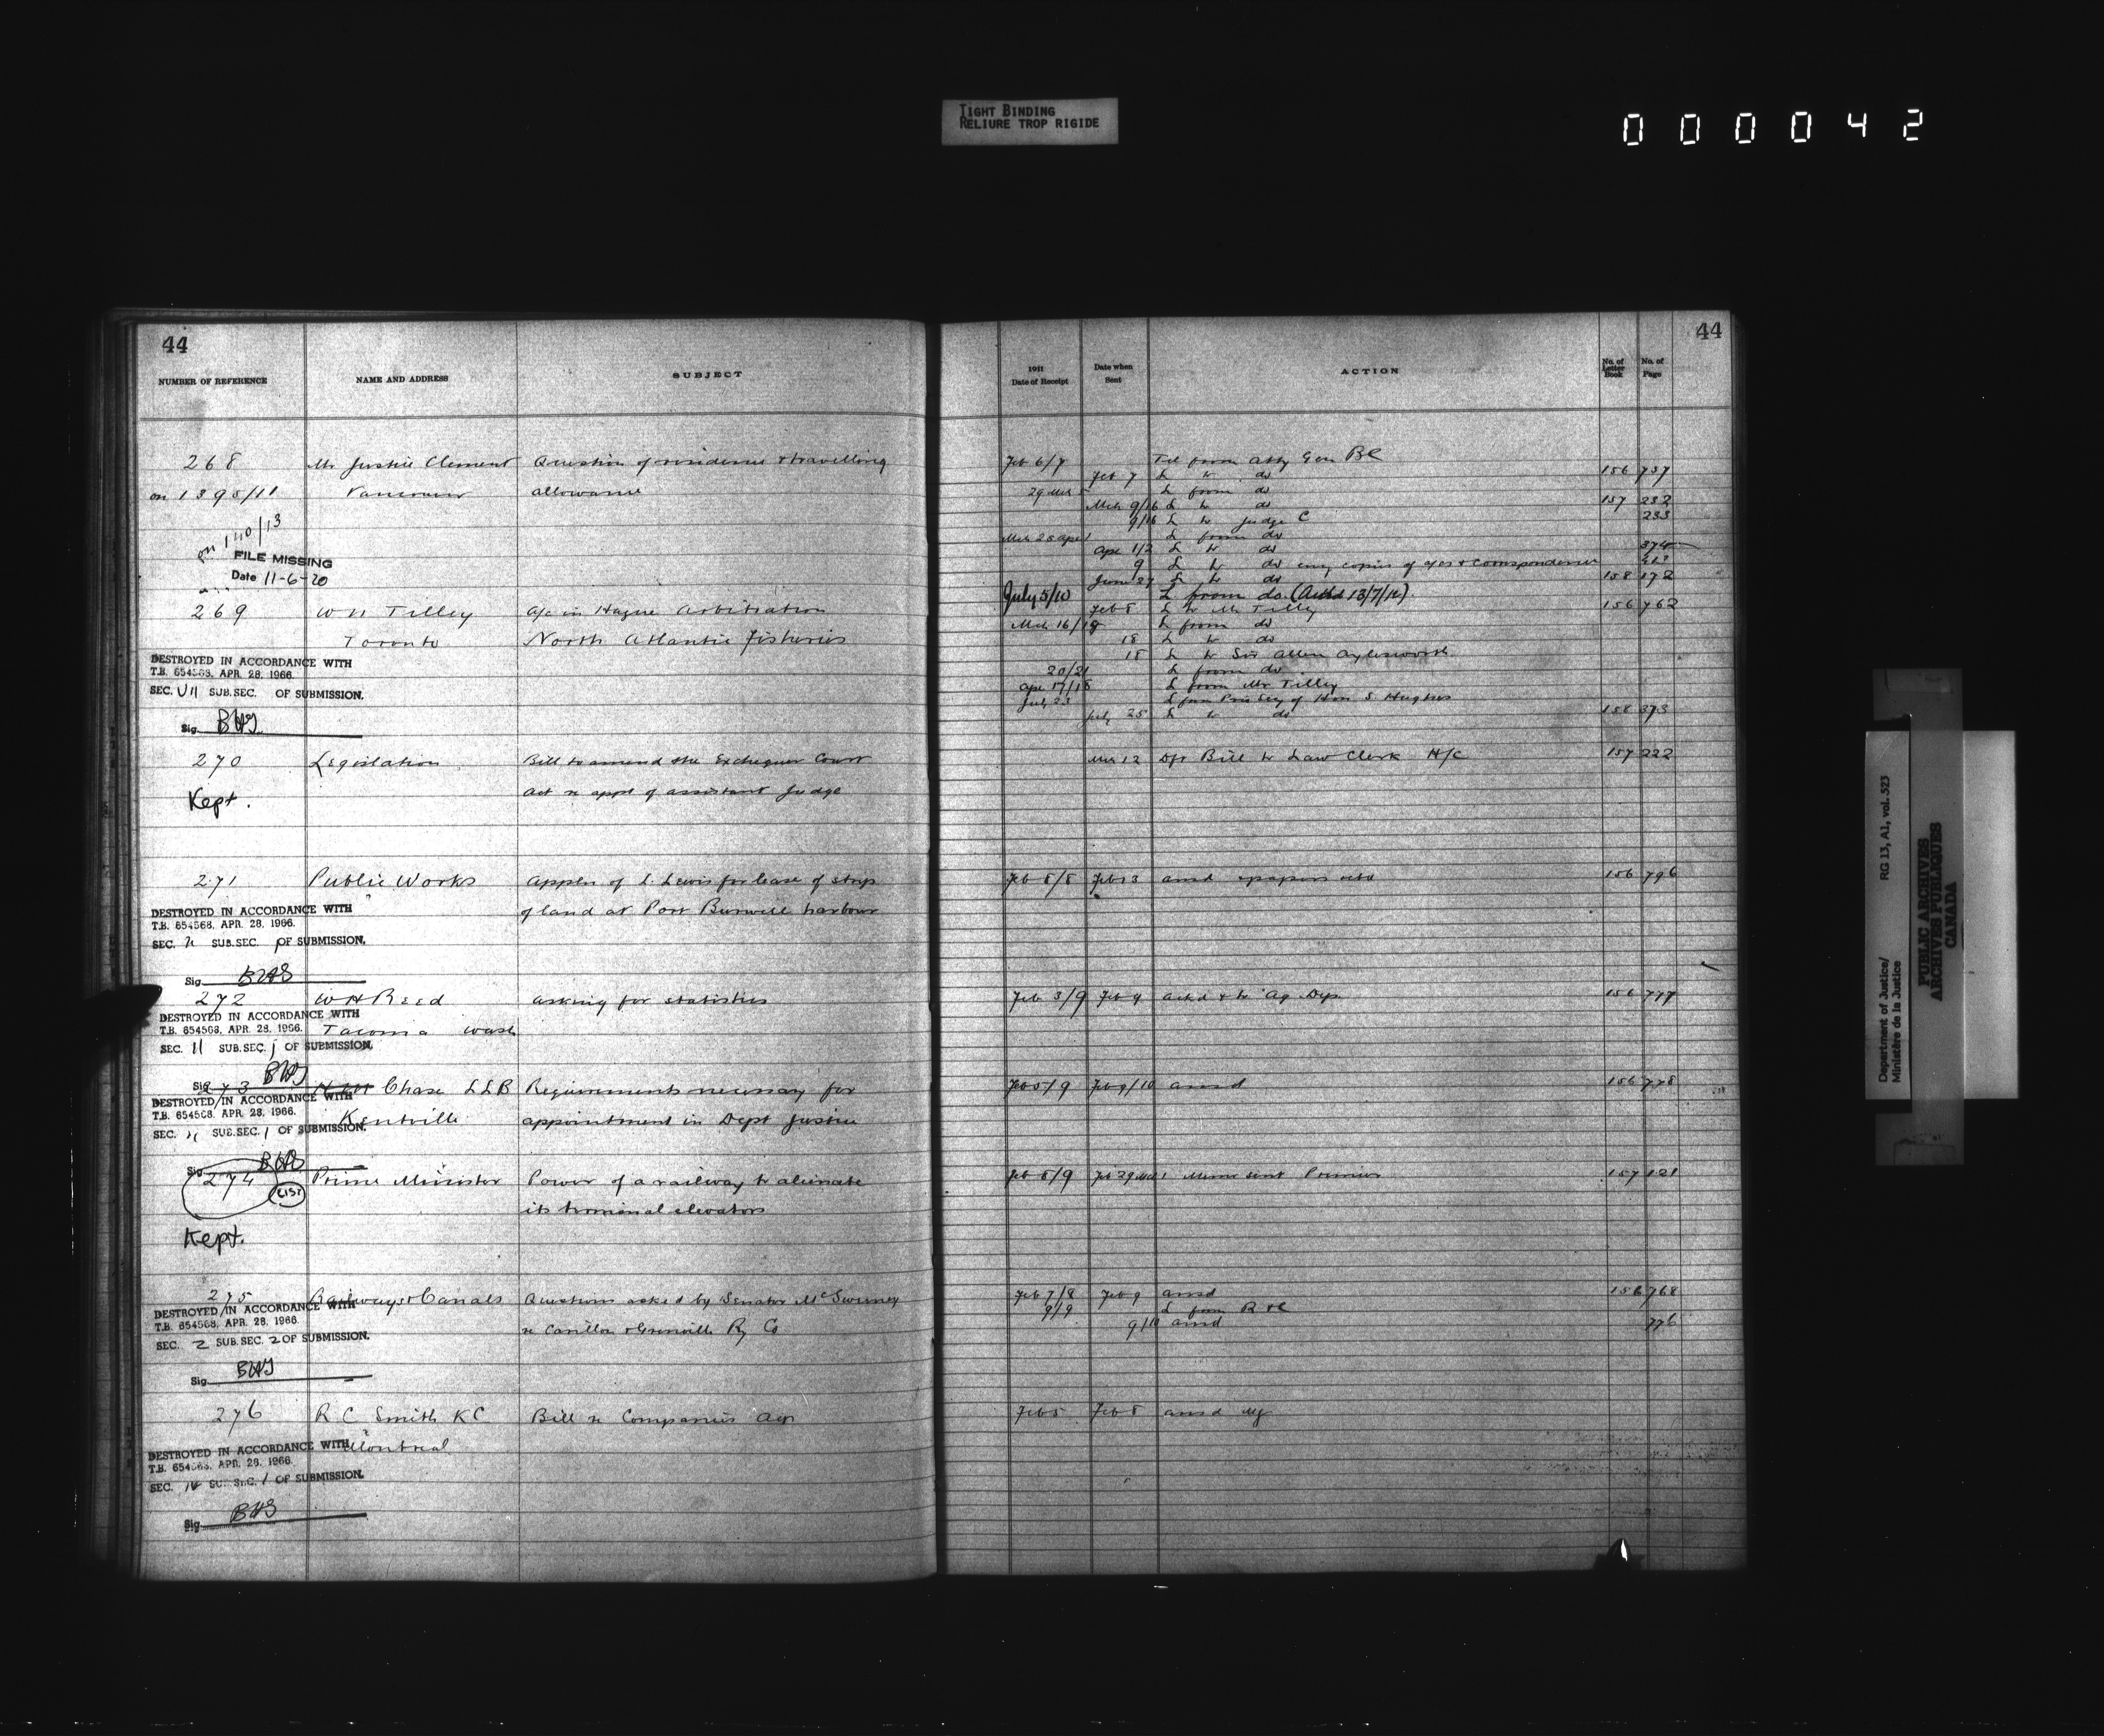 TIGHT BINDING
RELIURE TROP RIGIDE
000042
44
NUMBER OF REFERENCE NAME AND ADDRESS SUBJECT
268 Mr Justice Clement Question of residence & travelling
on 1395/11 Vancouver allowance
on 140/13
FILE MISSING
Date 11-6-20
269 W N Tilley a/c in Hague Arbitration
Toronto North Atlantic Fisheries
DESTROYED IN ACCORDANCE WITH
T.B. 654568, APR. 28, 1966.
SEC. VII SUB.SEC. OF SUBMISSION.
Sig. BHS
270 Legislation Bill to amend the Exchequer Court
Kept. Act re appt of assistant Judge
271 Public Works Appln of L. Lewis for lease of strip
of land at Port Burwell harbour
DESTROYED IN ACCORDANCE WITH
T.B. 654568, APR. 28, 1966.
SEC. SUB.SEC. OF SUBMISSION.
Sig. BHS
272 W H Reed asking for statistics
DESTROYED IN ACCORDANCE WITH
T.B. 654568, APR. 28, 1966. Tacoma Wash
SEC. 11 SUB.SEC. j OF SUBMISSION.
Sig. BHS
273 Chase LLB Requirements necessary for
DESTROYED IN ACCORDANCE WITH
T.B. 654568, APR. 28, 1966. Kentville appointment in Dept Justice
SEC. SUB.SEC. 1 OF SUBMISSION.
Sig. BHS
274 Prime Minister Power of a railway to alienate
LIST
its terminal elevators
Kept.
275 Railways & Canals Questions asked by Senator McSweeney
DESTROYED IN ACCORDANCE WITH
T.B. 654568, APR. 28, 1966. re Carillon & Grenville Ry Co
SEC. 2 SUB.SEC. 2 OF SUBMISSION.
Sig. BHS
276 R C Smith KC Bill re Companies Act
Montreal
DESTROYED IN ACCORDANCE WITH
T.B. 654568, APR. 28, 1966.
SEC. SUB.SEC. 1 OF SUBMISSION.
Sig. BHS
44
1911 Date of Receipt Date when Sent ACTION No. of Letter Book No. of Page
Feb 6/7 Tel from Atty Gen BC
Feb 7 L to do 156 737
29 Mar 5 L from do
Mch 9/16 L to do 157 232
9/16 L to Judge C 233
Mch 28 Apr 1 L from do
Apr 1/2 L to do 374
9 L to do enc copies of a/cs & correspondence
June 27 L to do 158 172
July 5/10 L from do. (Ackd 13/7/12).
Feb 8 L to Mr Tilley 156 762
Mch 16/18 L from do
18 L to do
18 L to Sir Allen Aylesworth
20/21 L from do
Apr 17/18 L from Mr Tilley
July 23 L from Priv Secy of Hon S Hughes
July 25 L to do 158 373
Mar 12 Dft Bill to Law Clerk H/C 157 222
Feb 8/8 Feb 13 ansd & papers retd 156 796
Feb 3/9 Feb 9 ackd & to Ag Dep. 156 777
Feb 5/9 Feb 9/10 ansd 156 778
Feb 8/9 Feb 29 Mar 1 Memo sent Premier 157 121
Feb 7/8 Feb 9 ansd 156 768
9/9 L from R & C
9/10 ansd 776
Feb 5 Feb 8 ansd
Department of Justice/
Ministère de la Justice
RG 13, A1, vol. 523
PUBLIC ARCHIVES
ARCHIVES PUBLIQUES
CANADA